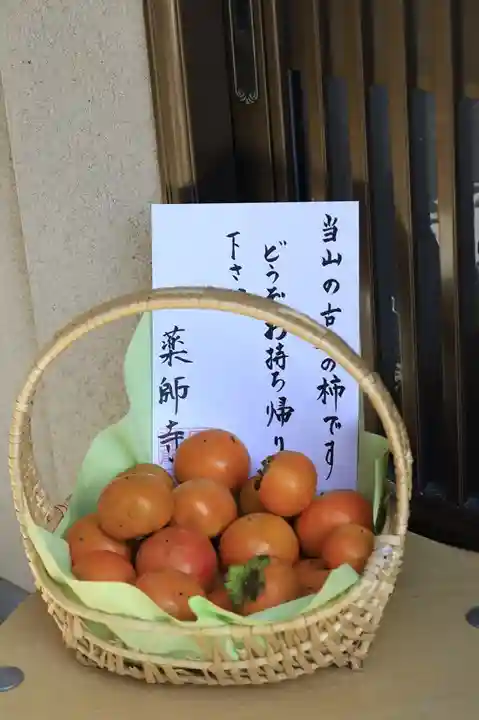 当山の古の柿です
どうぞお持ち帰り
下さ
薬師寺